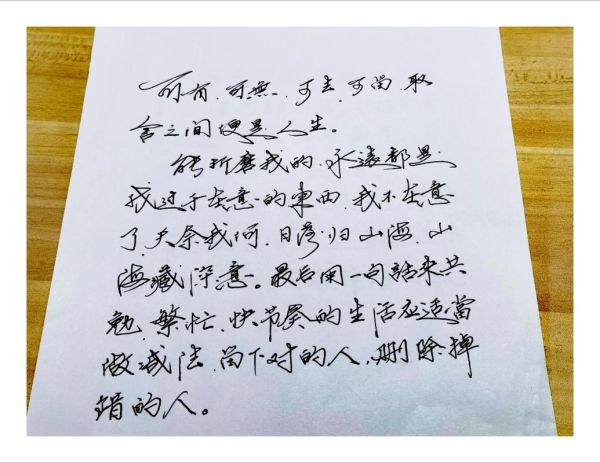 可有.可無.可去.可留.取
舍之间便是人生。
能折磨我的.永遠都是
我过于在意的東西.我不在意
了.天奈我何.日落归山海.山
海藏深意。最后用一句話来共
勉.繁忙.快节奏的生活应适當
做减法.留下对的人.删除掉
錯的人。